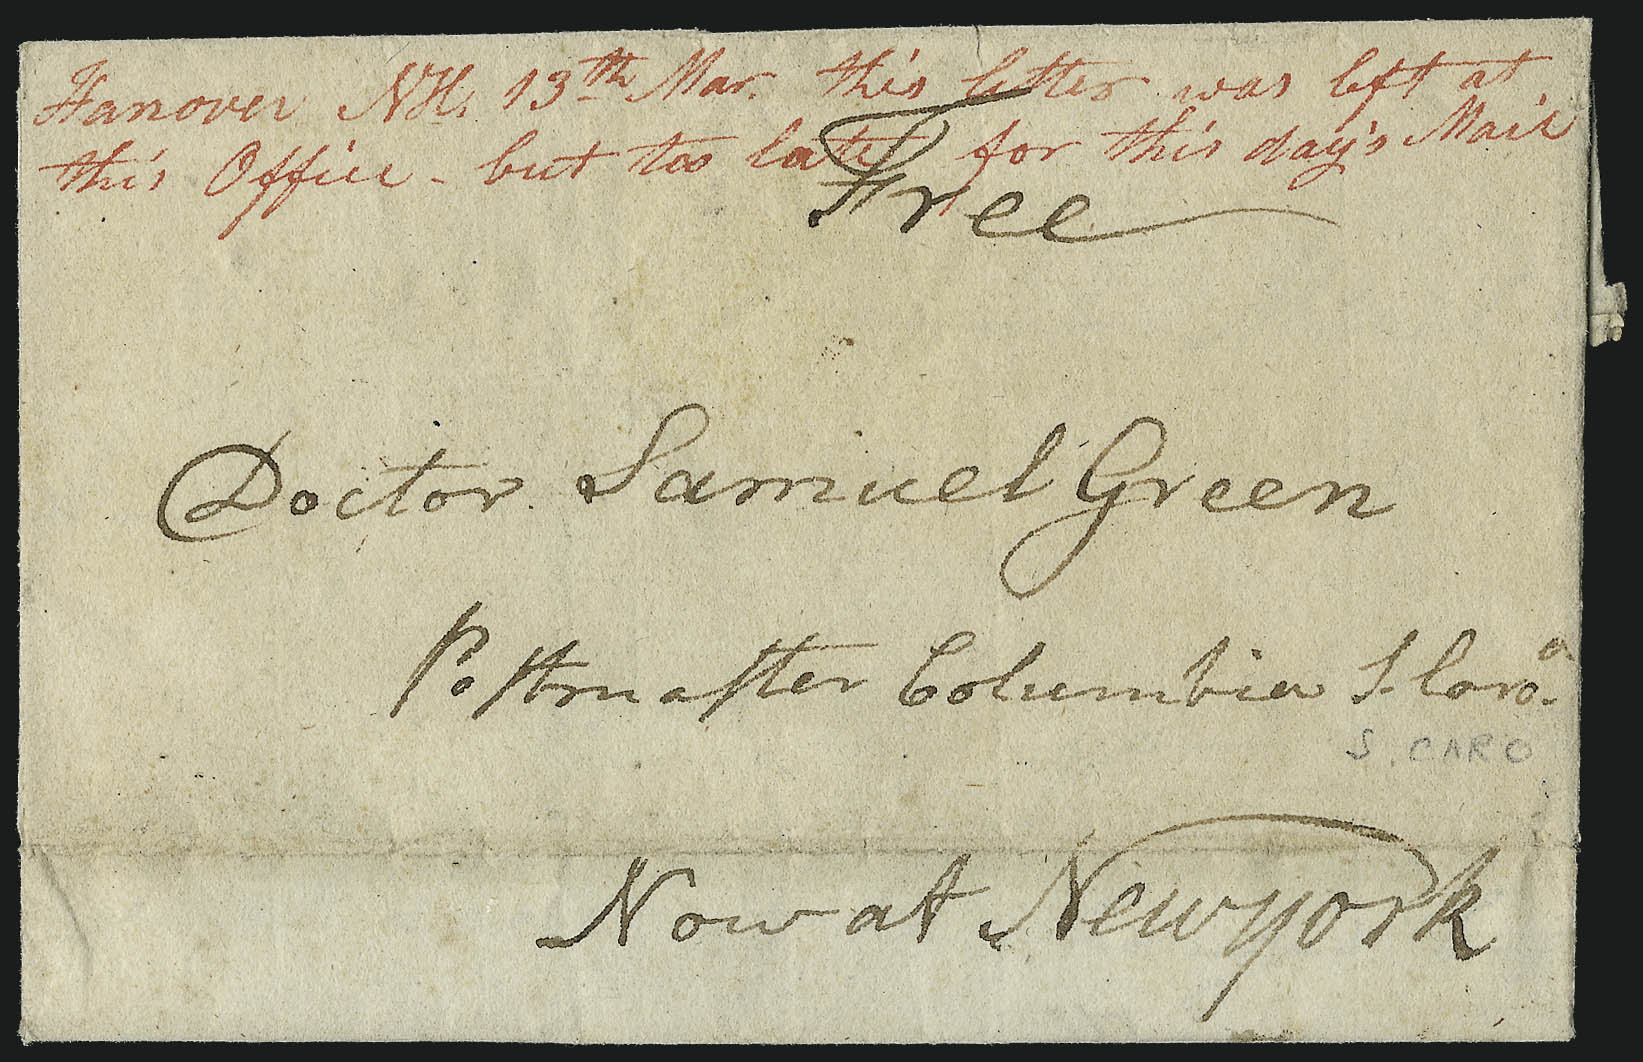 Hanover NH. 13th Mar. this letter was left at
this Office - but too late for this day's Mail
Free
Doctor Samuel Green
Postmaster Columbia S. Caroa.
S. CARO
Now at Newyork